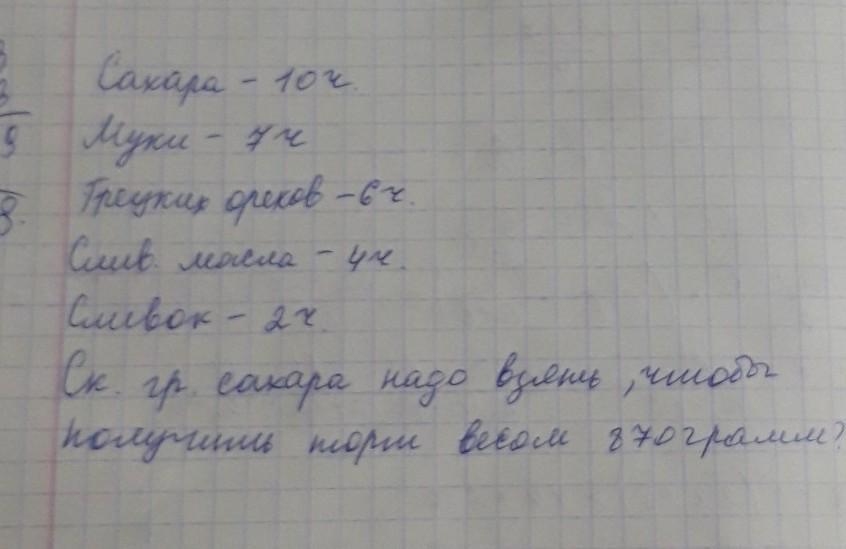 3
3
9
Сахара - 10ч.
Муки - 7ч
Грецких орехов - 6ч.
Слив. масла - 4ч.
Сливок - 2ч.
Ск. гр. сахара надо взять, чтобы
получить торт весом 870грамм?